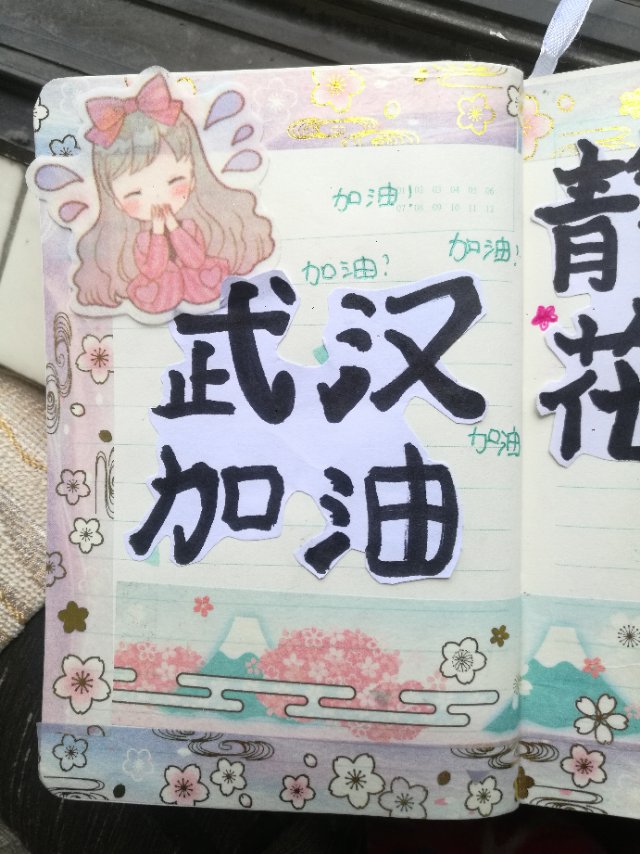 加油!
01 02 03 04 05 06
07 08 09 10 11 12
加油!
加油?
武汉
加油
加油
静
花